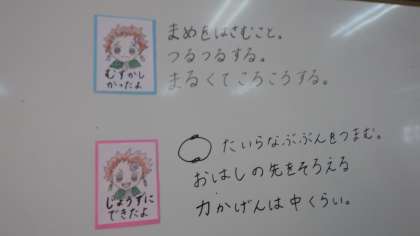 まめをはさむこと。
つるつるする。
まるくてころころする。
むずかし
かったよ
たいらなぶぶんをつまむ。
おはしの先をそろえる
力かげんは中くらい。
じょうずに
できたよ